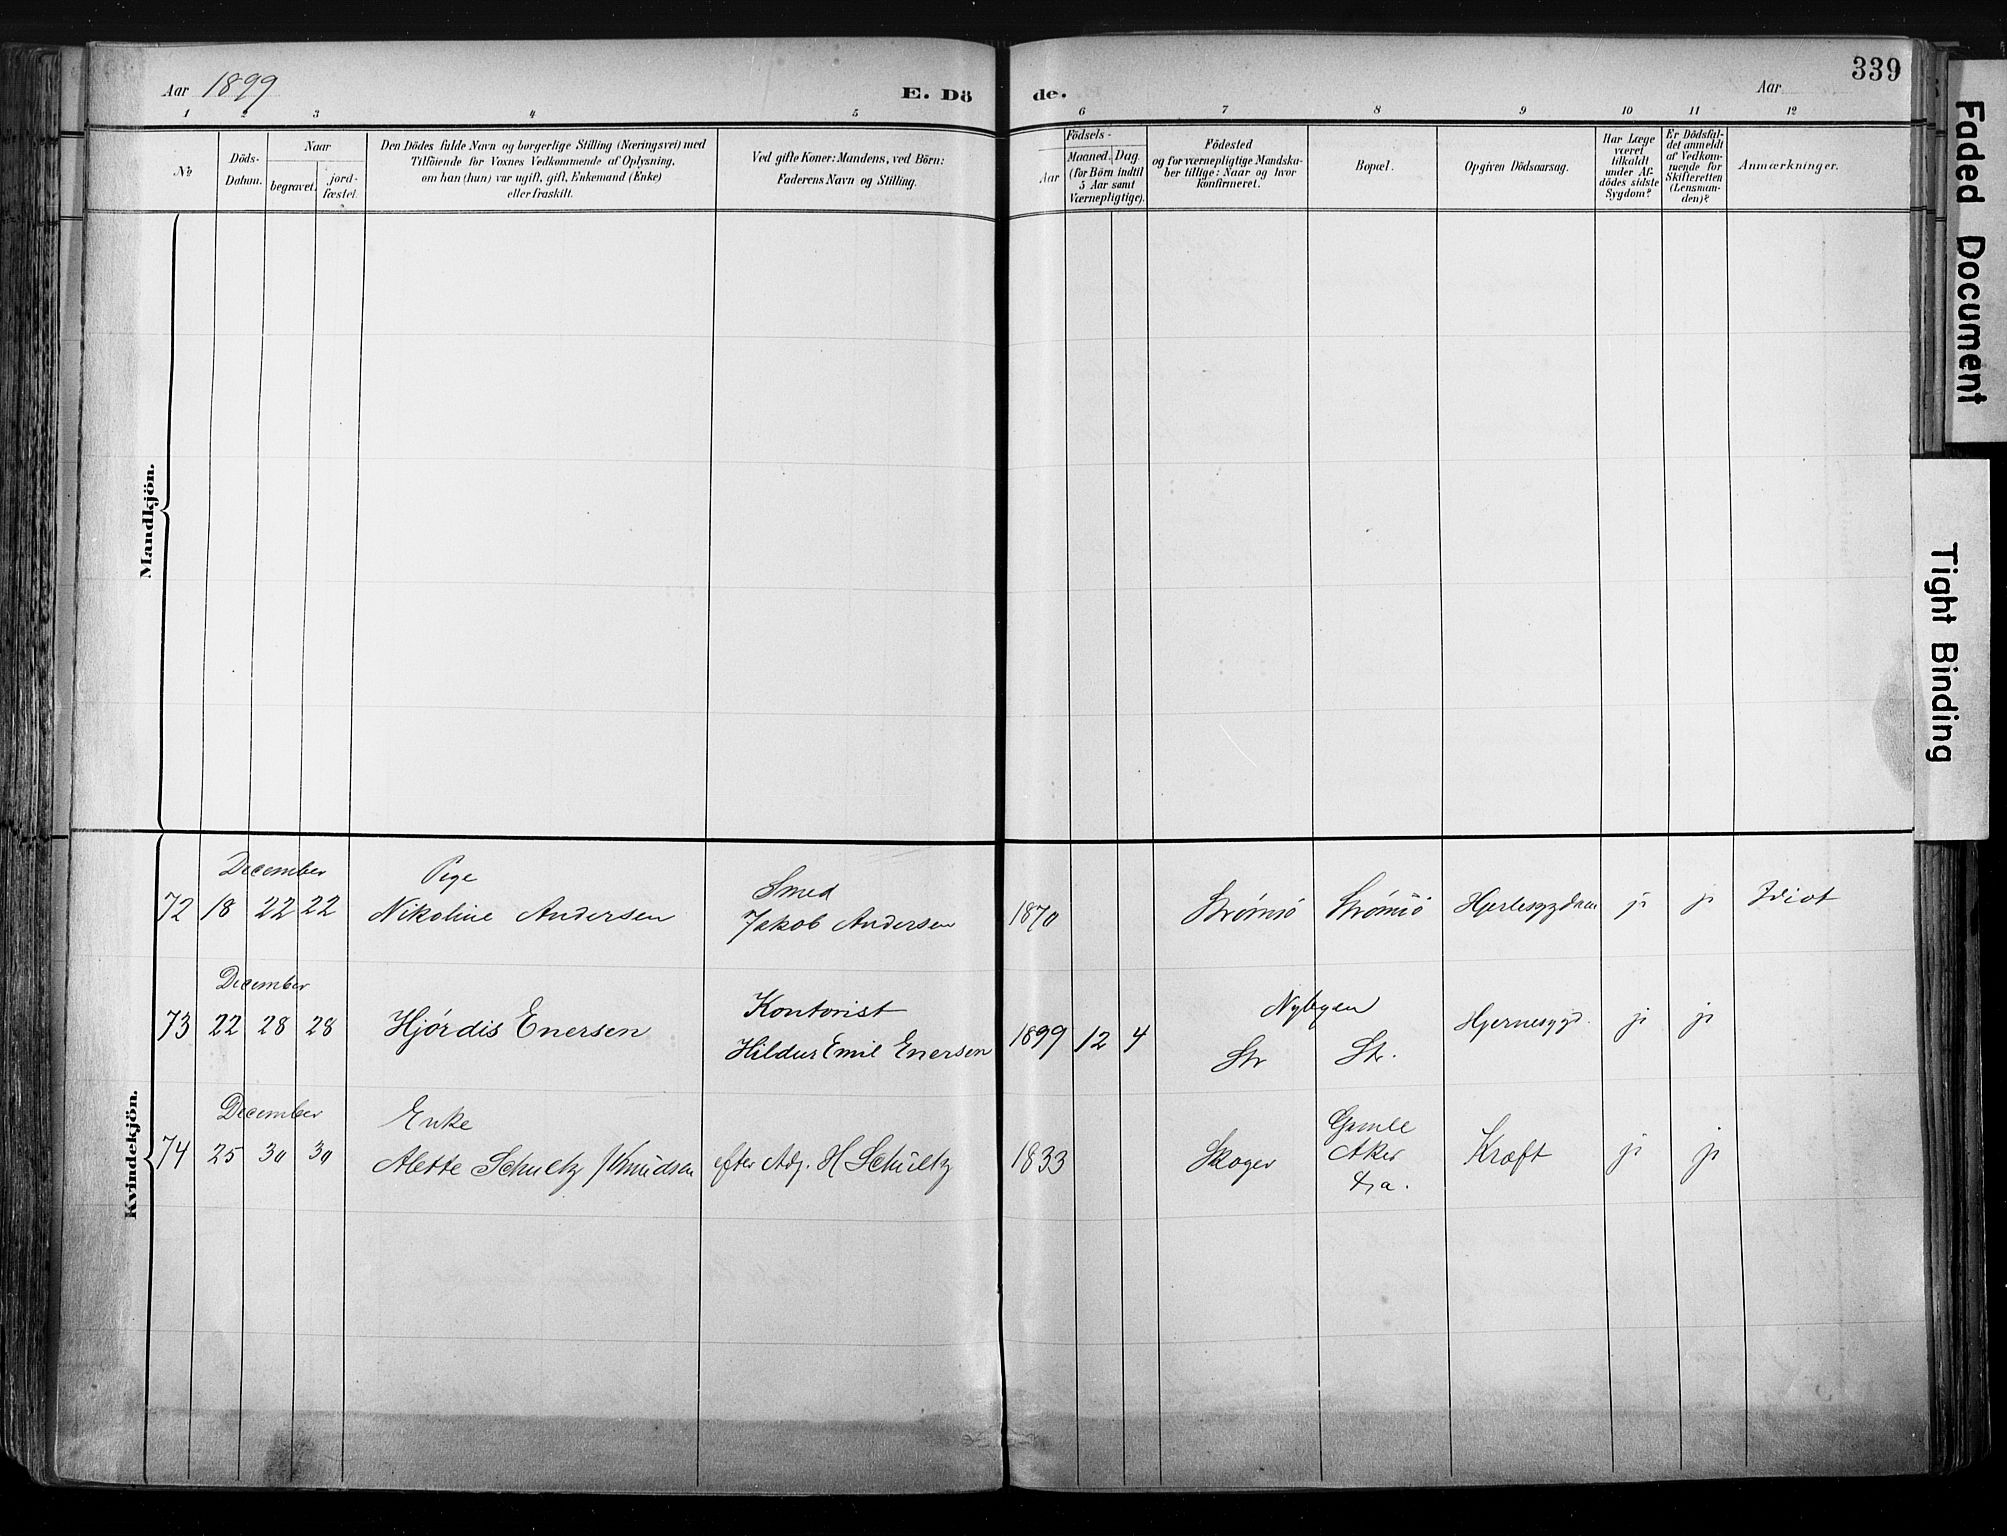 Aar 1899
E. Dö
de.
Aar
339
1 2 3 4 5 6 7 8 9 10 11 12
No
Döds-
Datum.
Naar
begravet.
jord-
fæstet.
Den Dödes fulde Navn og borgerlige Stilling (Næringsvei) med
Tilföiende for Voxnes Vedkommende af Oplysning,
om han (hun) var ugift, gift, Enkemand (Enke)
eller fraskilt.
Ved gifte Koner: Mandens, ved Börn:
Faderens Navn og Stilling.
Födsels-
Aar
Maaned. Dag
(for Börn indtil
5 Aar samt
Værnepligtige).
Födested
og for værnepligtige Mandska-
ber tillige: Naar og hvor
konfirmeret.
Bopæl.
Opgiven Dödsaarsag.
Har Læge
været
tilkaldt
under Af-
dödes sidste
Sygdom?
Er Dödsfal-
det anmeldt
af Vedkom-
mende for
Skifteretten
(Lensman-
den)?
Anmærkninger.
Mandkjön.
Kvindekjön.
December Pige Smed
72 18 22 22 Nikoline Andersen Jakob Andersen 1870 Strømsø Strømsø ja ja Idiot
December Kontorist Nybyen
73 22 28 28 Hjórdis Enersen Emil Enersen 1899 12 4 Str Str. Hjernesygd. ja ja
December Enke Gamle
74 25 30 30 Alette Schultz f Knudsen efter Adj. H Schultz 1833 Skoger Aker Kræft ja ja
Faded Document
Tight Binding